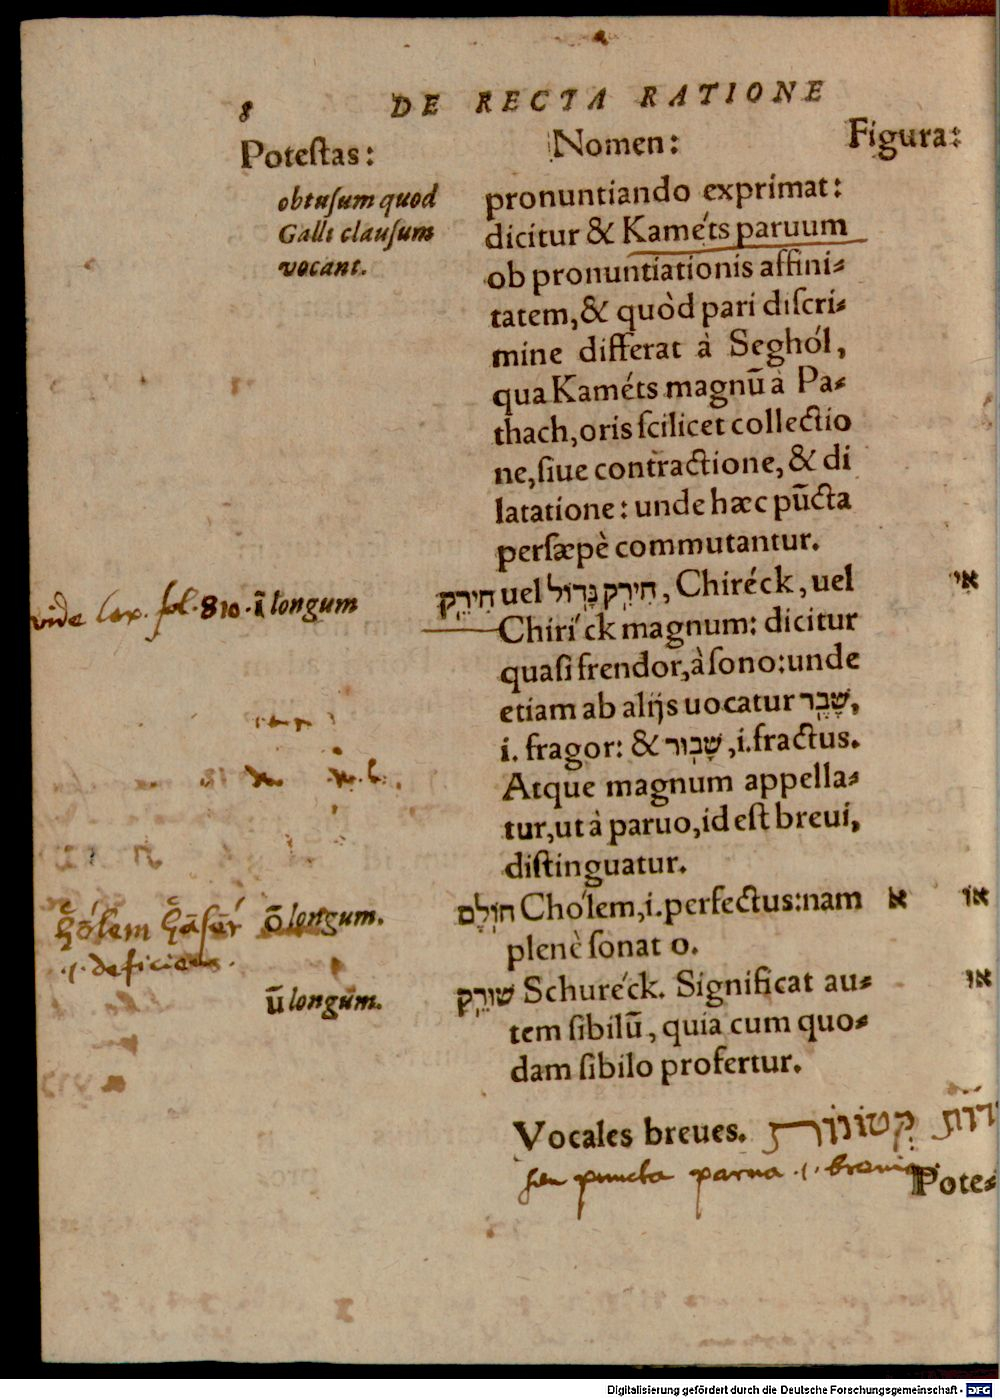 8 DE RECTA RATIONE
Potestas: Nomen: Figura:
obtusum quod
Galli clausum
vocant.
pronuntiando exprimat:
dicitur & Kaméts paruum
ob pronuntiationis affini-
tatem, & quòd pari discri-
mine differat à Seghól,
qua Kaméts magnū à Pa-
thach, oris scilicet collectio
ne, siue contractione, & di
latatione: unde hæc pūcta
persæpè commutantur.
vide Lex. fol. 810. ī longum
חִירֶק uel חִירֶק גָּדוֹל, Chiréck, uel אִי
Chiríck magnum: dicitur
quasi frendor, à sono: unde
etiam ab alijs uocatur שֶׁבֶר,
i. fragor: & שָׁבוּר, i. fractus.
Atque magnum appella-
tur, ut à paruo, id est breui,
distinguatur.
ḥōlem ḥāsēr
.i. deficiens.
ō longum. חוֹלֶם Chólem, i. perfectus: nam א או
plenè sonat o.
ū longum. שׁוּרֶק Schuréck. Significat au- או
tem sibilū, quia cum quo-
dam sibilo profertur.
Vocales breues. קְטוֹנוֹת
seu puncta parua .i. brevia
Pote-
Digitalisierung gefördert durch die Deutsche Forschungsgemeinschaft - DFG